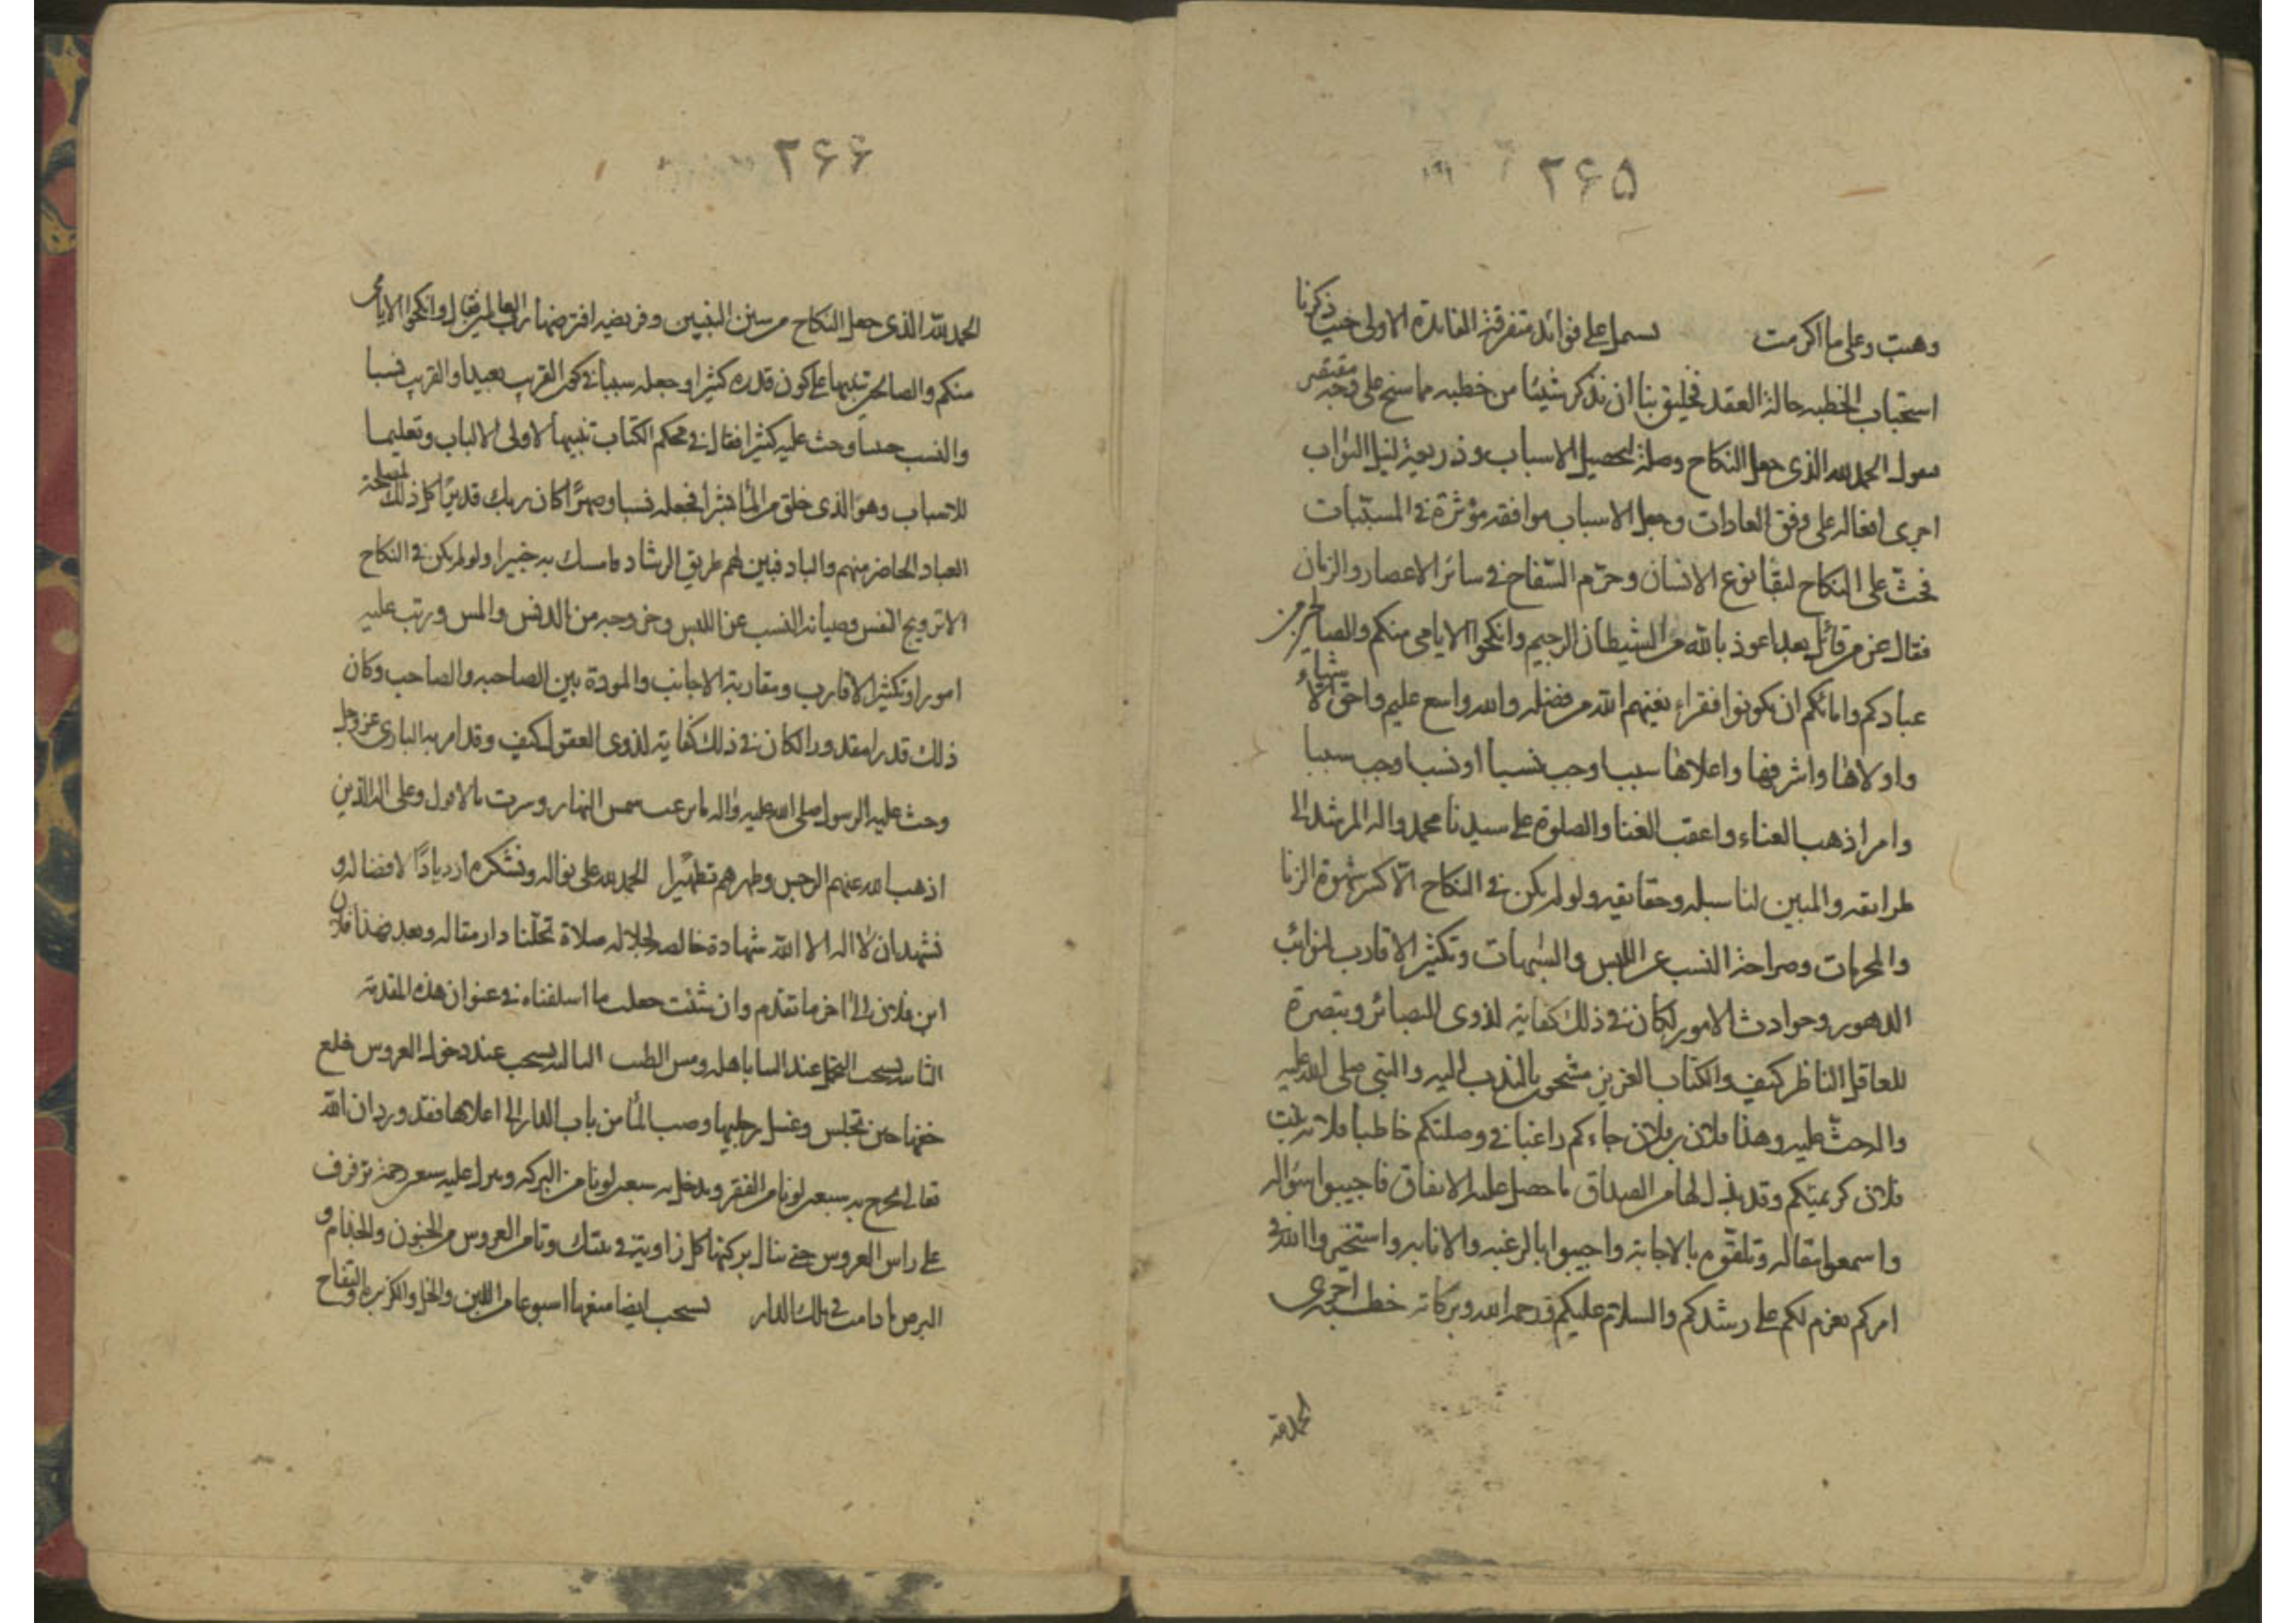 ۲۶۵
وهبت وعلى ما اكرمت يشمل على فوائد متفرقة الفائدة الاولى حيث ذكرنا
استحباب الخطبه حالة العقد فخليق بنا ان نذكر شيئا من خطبه مما سنح على وجه مقتصر
الحمد لله الذى جعل النكاح وصلة لتحصيل الاسباب وذريعة لنيل الثواب
اجرى افعاله على وفق العادات وجعل الاسباب موافقه مؤثرة فى المسببات
فحث على النكاح لبقا نوع الانسان وحرم السفاح فى سائر الاعصار والزمان
فقال عز من قائل بعد اعوذ بالله من الشيطان الرجيم وانكحوا الايامى منكم والصالحين من
عبادكم وامائكم ان يكونوا فقراء يغنيهم الله من فضله والله واسع عليم واحق الاشياء
واولاها واشرفها واعلاها سببا وجب نسبا او نسبا وجب سببا
وامرا ذهب العناء واعقب الغنا والصلوة على سيدنا محمد واله المرشد الى
طرائقه والمبين لنا سبله وحقائقه ولو لم يكن فى النكاح الا كسر شهوة الزنا
والمحرمات وصراحة النسب عن اللبس والشبهات وتكثير الاقارب لنوائب
الدهور وحوادث الامور لكان فى ذلك كفاية لذوى البصائر وتبصرة
للعاقل الناظر كيف والكتاب العزيز مشحون بالندب اليه والنبى صلى الله عليه
واله حث عليه وهذا فلان بن فلان جاءكم راغبا فى وصلتكم خاطبا فلانة بنت
فلان كريمتكم وقد بذل لها من الصداق ما حصل عليه الاتفاق فاجيبوا سؤاله
واسمعوا مقاله وتلقوه بالاجابة واجيبوا بالرغبه والانابه واستخيروا الله فى
امركم يعزم لكم على رشدكم والسلام عليكم ورحمة الله وبركاته خطبة اخرى
الحمد لله
۲۶۶
الحمد لله الذى جعل النكاح من سنن النبيين وفريضه افترضها رب العالمين فقال وانكحوا الايامى
منكم والصالحين تنبيها على كون قدره كثيرا وجعله سببا فى كون القريب بعيدا والقريب نسبا
والنسب حسبا وحث عليه كثيرا فقال فى محكم الكتاب تنبيها لاولى الالباب وتعليما
للاسباب وهو الذى خلق من الماء بشرا فجعله نسبا وصهرا وكان ربك قديرا كل ذلك لمصلحة
العباد الحاضر منهم والباد فبين لهم طريق الرشاد فامسك به خبيرا ولو لم يكن فى النكاح
الا ترويح النفس وصيانه النسب عن اللبس وخروجه من الدنس والمس ورتب عليه
امورا وتكثير الاقارب ومقاربة الاجانب والمودة بين الصاحبه والصاحب وكان
ذلك قدرا مقدورا لكان فى ذلك كفاية لذوى العقول كيف وقد امر به البارى عز وجل
وحث عليه الرسول صلى الله عليه واله ما غربت شمس النهار وسرت بالافول وعلى اله الذين
اذهب الله عنهم الرجس وطهرهم تطهيرا الحمد لله على نواله ونشكره ازديادا لافضاله و
نشهد ان لا اله الا الله شهادة خالصه لجلاله صلاة تحلنا دار مقاله وبعد فهذا فلان
ابن فلان الى اخر ما تقدم وان شئت جعلت ما اسلفناه فى عنوان هذه المقدمة
الثانيه يستحب التجمل عند البنا باهله ومس الطيب الثالثه يستحب عند دخول العروس خلع
خفها حين تجلس وغسل رجليها وصب الماء من باب الدار الى اعلاها فقد ورد ان الله
تعالى يخرج به سبعين لونا من الفقر ويدخل به سبعين لونا من البركه وينزل عليه سبعين رحمة ترفرف
على راس العروس حتى تنال بركتها كل زاوية فى بيتك وتامن العروس من الجنون والجذام و
البرص ما دامت فى تلك الدار يستحب ايضا منعها اسبوعا من اللبن والخل والكزبره والتفاح